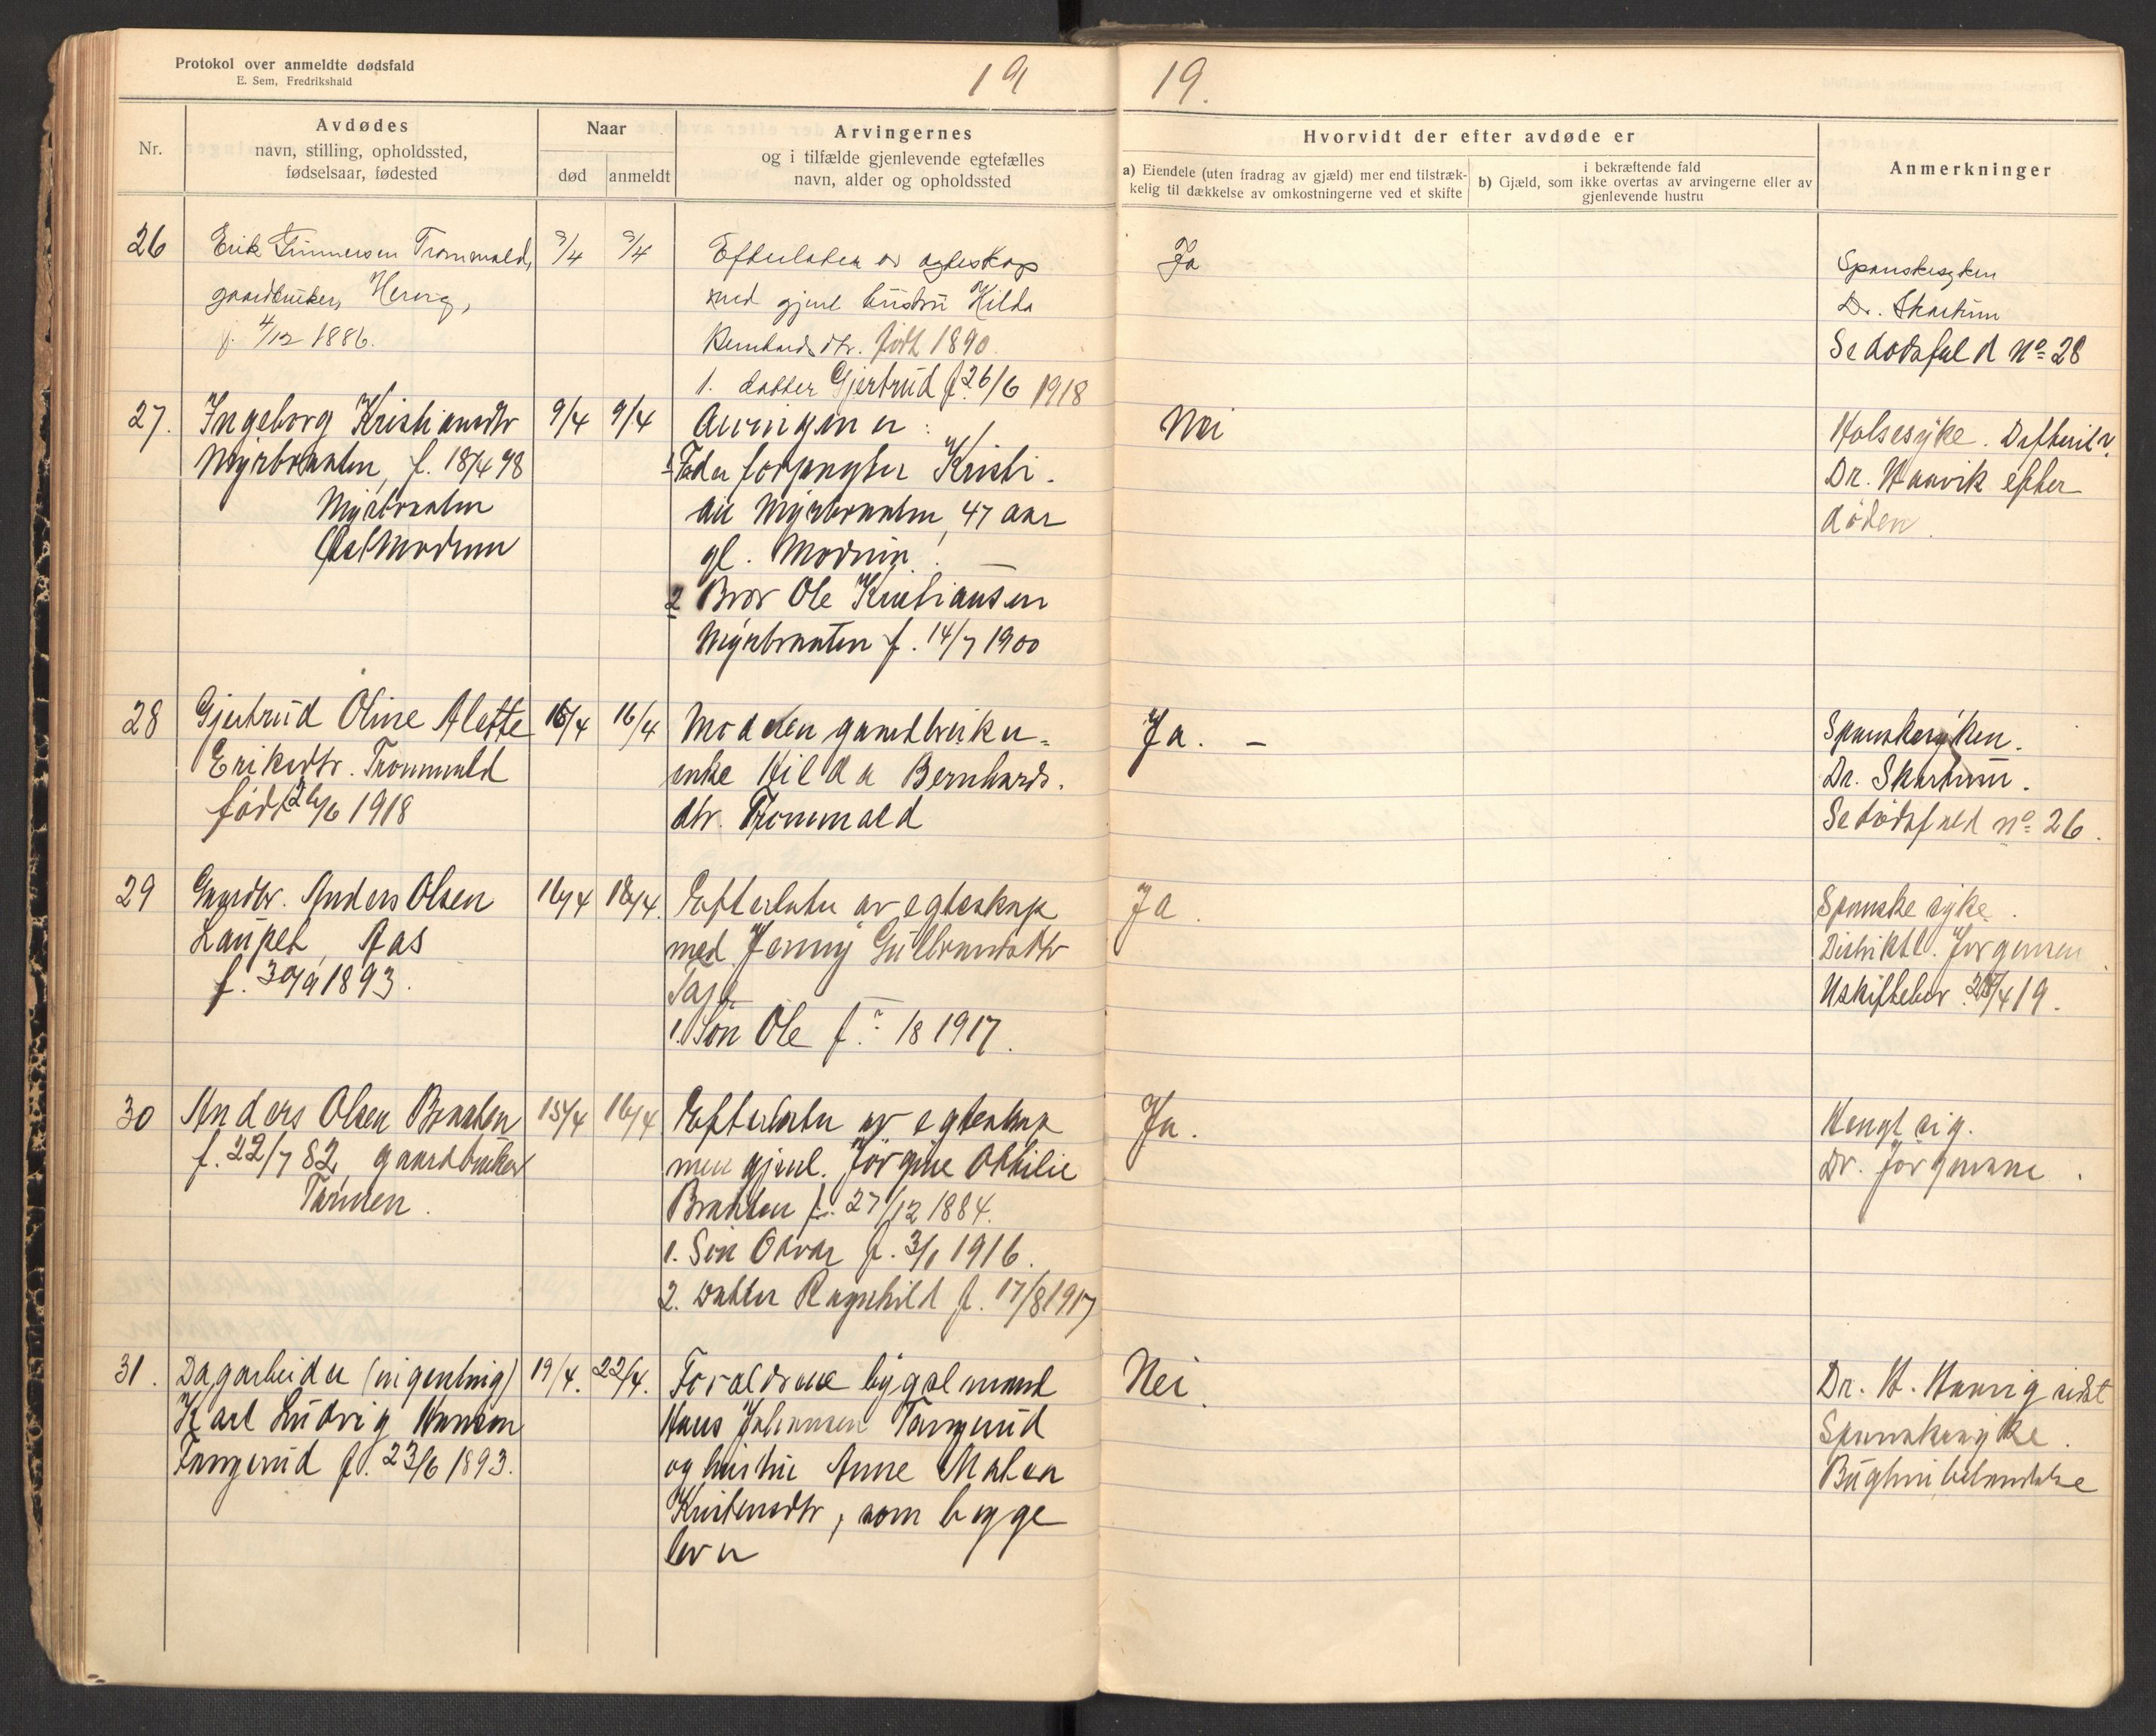 Protokol over anmeldte dødsfald
E. Sem, Fredrikshald
19
19.
Nr.
Avdødes
navn, stilling, opholdssted,
fødselsaar, fødested
Naar
død
anmeldt
Arvingernes
og i tilfælde gjenlevende egtefælles
navn, alder og opholdssted
Hvorvidt der efter avdøde er
a) Eiendele (uten fradrag av gjæld) mer end tilstræk-
kelig til dækkelse av omkostningerne ved et skifte
i bekræftende fald
b) Gjæld, som ikke overtas av arvingerne eller av
gjenlevende hustru
Anmerkninger
26
Erik Gunnersen Trommald,
gaardbruker,
f. 4/12 1886.
9/4
9/4
Efterlater av egteskap
med gjenl hustru Hilda
Bernhardsdtr. født 1890.
1. datter Gjertrud f. 26/6 1918
Ja
Spanskesyken
Dr. Skartum
Se dødsfald No 28
27.
Ingeborg Kristiansdtr
Myrbraaten, f. 18/4 98
Myrbraaten
Modum
9/4
9/4
Arvingen er:
1 Fader forpagter Kristi-
an Myrbraaten, 47 aar
gl. Modum.
2 Bror Ole Kristiansen
Myrbraaten f. 14/7 1900
Nei
Halsesyke.
Dr. Haavik efter
døden.
28
Gjertrud Oline Alette
Eriksdtr. Trommald
født 26/6 1918
16/4
16/4
Moderen gaardbruker-
enke Hilda Bernhards-
dtr. Trommald
Ja. –
Spanskesyken.
Dr. Skartum.
Se dødsfald No 26.
29
Gaardbr. Anders Olsen
Laupet, Aas
f. 1893.
16/4
Efterlater av egteskap
med Jenny Gulbrandsdtr
1. Søn Ole f. 18 1917.
Ja.
Spanske syke.
Distriktl. Jørgensen
Uskiftebev. 4 19.
30
Anders Olsen Braaten
f. 22/7 82, gaardbruker
15/4
16/4
Efterlater av egteskap
med gjenl. Jørgine Othilie
Braaten f. 27/12 1884.
1. Søn f. 3/1 1916.
2. Datter Ragnhild f. 17/8 1917
Ja.
Hengt sig.
Dr.
31.
Dagarbeider (ingenting)
Karl Ludvig Hansen
Tangerud f. 23/6 1893.
19/4.
22/4.
Forældrene bygselmand
Hans Johansen Tangerud
og hustru Anne Malea
Kristensdtr, som begge
lever
Nei.
Dr. H.
Spanskesyke.